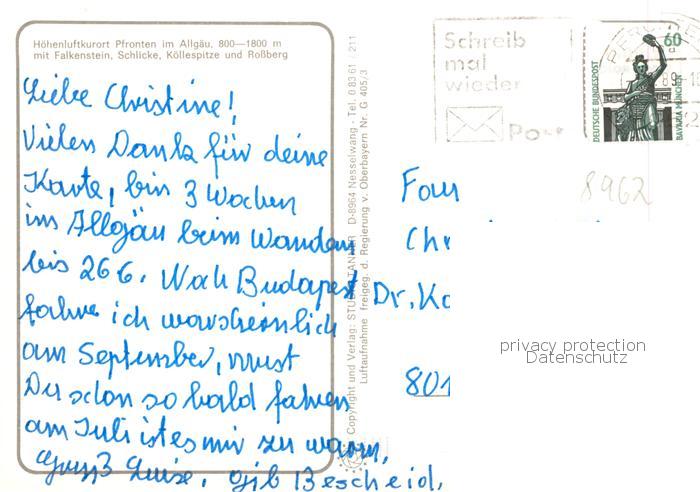 Höhenluftkurort Pfronten im Allgäu, 800—1800 m
mit Falkenstein, Schlicke, Köllespitze und Roßberg
Liebe Christine!
Vielen Dank für deine
Karte, bin 3 Wochen
im Allgäu beim Wandern,
bis 26 6. Nach Budapest
fahre ich warscheinlich
am September, must
Du schon so bald fahren
am Juli ist es mir zu warm,
Gruß Luise, gib Bescheid,
Copyright und Verlag: STUDIO TANNER D-8964 Nesselwang · Tel. 0 83 61 / 211
Luftaufnahme freigeg. d. Regierung v. Oberbayern Nr. G 405/3
Schreib
mal
wieder
Post
60
DEUTSCHE BUNDESPOST
BAVARIA MÜNCHEN
8962
Fam
Chr
Dr. Ko
801
privacy protection
Datenschutz